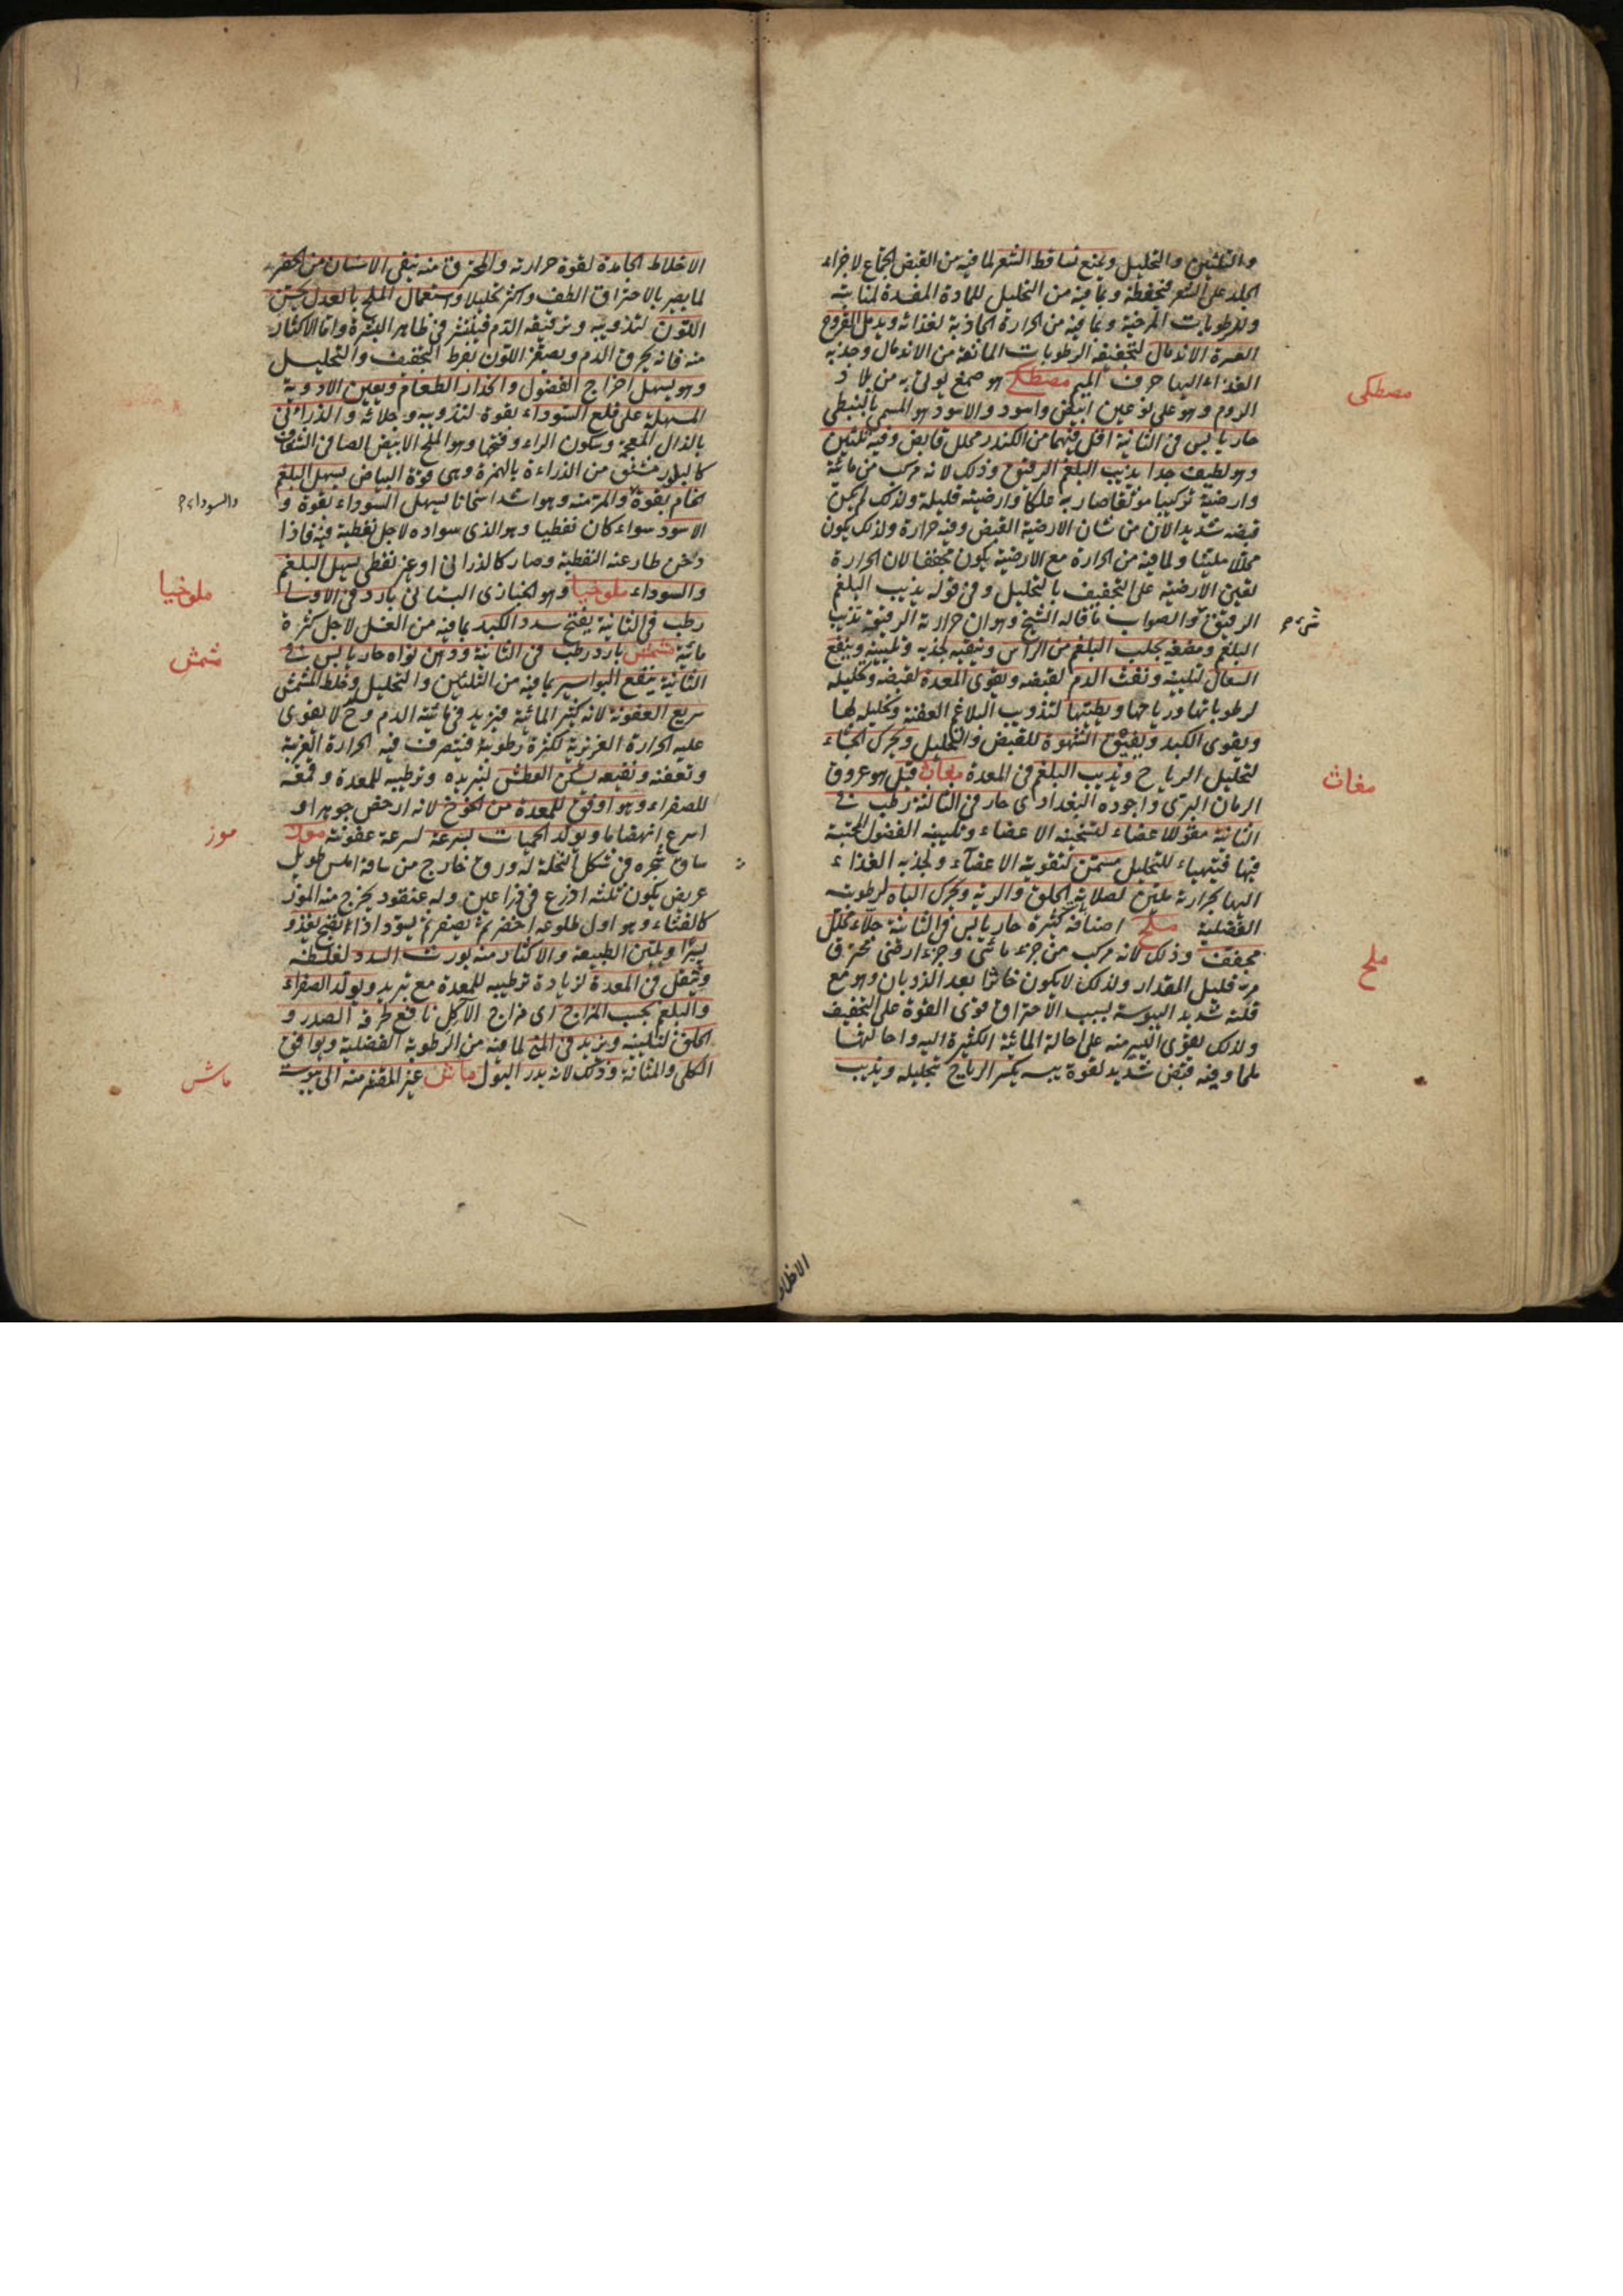 والتليين والتحليل ويمنع تساقط الشعر لما فيه من القبض الجماع لاجزاء
الجلد على الشعر فتحفظه وبما فيه من التحليل للمادة المفسدة لمنابته
وللرطوبات المرخية وبما فيه من الحرارة الجاذبة لغذائه ويدمل القروح
العسرة الاندمال لتجفيفه الرطوبات المانعة من الاندمال وجذبه
الغذاء اليها حرف الميم مصطكى هو صمغ يؤتى به من بلاد
الروم وهو على نوعين ابيض واسود والاسود هو المسمى بالنبطى
حار يابس فى الثانية اقل فيهما من الكندر محلل قابض وفيه تليين
وهو لطيف جدا يذيب البلغم الرقيق وذلك لانه مركب من مائية
وارضية تركيبا موثقا صار به علكا وارضيته قليلة ولذلك لم يكن
قبضه شديدا لان من شان الارضية القبض وفيه حرارة ولذلك يكون
محللا ملينا ولما فيه من الحرارة مع الارضية يكون مجففا لان الحرارة
تعين الارضية على التجفيف بالتحليل وفى قوله يذيب البلغم
الرقيق والصواب ما قاله الشيخ وهو ان حرارته الرقيقة تذيب
البلغم ومضغه يجلب البلغم من الراس وينقيه لجذبه وتليينه وينفع
السعال لتليينه ونفث الدم لقبضه ويقوى المعدة لقبضه وتحليله
لرطوباتها ورياحها ويطيبها لتذويب البلاغم العفنة وتحليله لها
ويقوى الكبد ويفيق الشهوة للقبض والتحليل ويحرك الجشاء
لتحليل الرياح ويذيب البلغم فى المعدة مغاث قيل هو عروق
الرمان البرى واجوده البغدادى حار فى الثالثة رطب فى
الثانية مقو للاعضاء لتسخينه الاعضاء وتليينه الفضول المحتبسة
فيها فتتهياء للتحليل مسمن لتقويته الاعضاء ولجذبه الغذاء
اليها بحرارته ملين لصلابة الحلق والرية ويحرك الباه لرطوبته
الفضلية ملح اصنافه كثيرة حار يابس فى الثانية جلاء محلل
مجفف وذلك لانه مركب من جزء مائى وجزء ارضى محترق
مر قليل المقدار ولذلك لا يكون خاثرا بعد الذوبان وهو مع
قلته شديد اليبوسة بسبب الاحتراق قوى القوة على التجفيف
ولذلك تقوى اليسير منه على احالة المائية الكثيرة اليه واحالتها
ملحا وفيه قبض شديد لقوة يبسه يكسر الرياح بتحليله ويذيب
مصطكى
مغاث
ملح
الاخلاط
الاخلاط الجامدة لقوة حرارته والمحترق منه ينقى الاسنان من الحفر
لما يصير بالاحتراق الطف واكثر تحليلا واستعمال الملح بالعدل يحسن
اللون لتذويبه وترقيقه الدم فينتشر فى ظاهر البشرة واما الاكثار
منه فانه يحرق الدم ويصفر اللون بفرط التجفيف والتحليل
وهو يسهل اخراج الفضول واكدار الطعام ويعين الادوية
المسهلة على قلع السوداء بقوة لتذويبه وجلائه والذرانى
بالذال المعجمة وسكون الراء وفتحها وهو الملح الابيض الصافى الشفاف
كالبلور مشتق من الذراءة بالهمزة وهى قوة البياض يسهل البلغم
الخام بقوة والمر منه وهو اشد اسخانا يسهل السوداء بقوة و
الاسود سواء كان نفطيا وهو الذى سواده لاجل نفطية فيه فاذا
دخن طار عنه النفطية وصار كالذرانى او غير نفطى يسهل البلغم
والسوداء ملوخيا وهو الخبازى البستانى بارد فى الاولى
رطب فى الثانية يفتح سدد الكبد بما فيه من الغسل لاجل كثرة
مائية مشمش بارد رطب فى الثانية ودهن نواه حار يابس فى
الثانية ينفع البواسير بما فيه من التليين والتحليل وخلط المشمش
سريع العفونة لانه كثير المائية فيزيد فى مائية الدم وح لا يقوى
عليه الحرارة الغريزية لكثرة رطوبته فيتصرف فيه الحرارة الغريبة
وتعفنه ونقيعه يسكن العطش لتبريده وترطيبه للمعدة وقمعه
للصفراء وهو اوفق للمعدة من الخوخ لانه ارخص جوهرا و
اسرع انهضاما ويولد الحميات بسرعة لسرعة عفونته موز
ساق شجره فى شكل النخلة له ورق خارج من ساقه املس طويل
عريض يكون ثلثة اذرع فى ذراعين وله عنقود يخرج منه الموز
كالقثاء وهو اول طلوعه اخضر ثم يصفر ثم يسود اذا نضج يغذو
يسيرا ويلين الطبيعة والاكثار منه يورث السدد لغلظه
ويثقل فى المعدة لزيادة ترطيبه للمعدة مع تبريد ويولد الصفراء
والبلغم بحسب المزاج اى مزاج الآكل نافع لحرقة الصدر و
الحلق لتليينه ويزيد فى المنى لما فيه من الرطوبة الفضلية ويوافق
الكلى والمثانة وذلك لانه يدر البول ماش غير المقشر منه الى يبوسة
والسوداء
ملوخيا
مشمش
موز
ماش